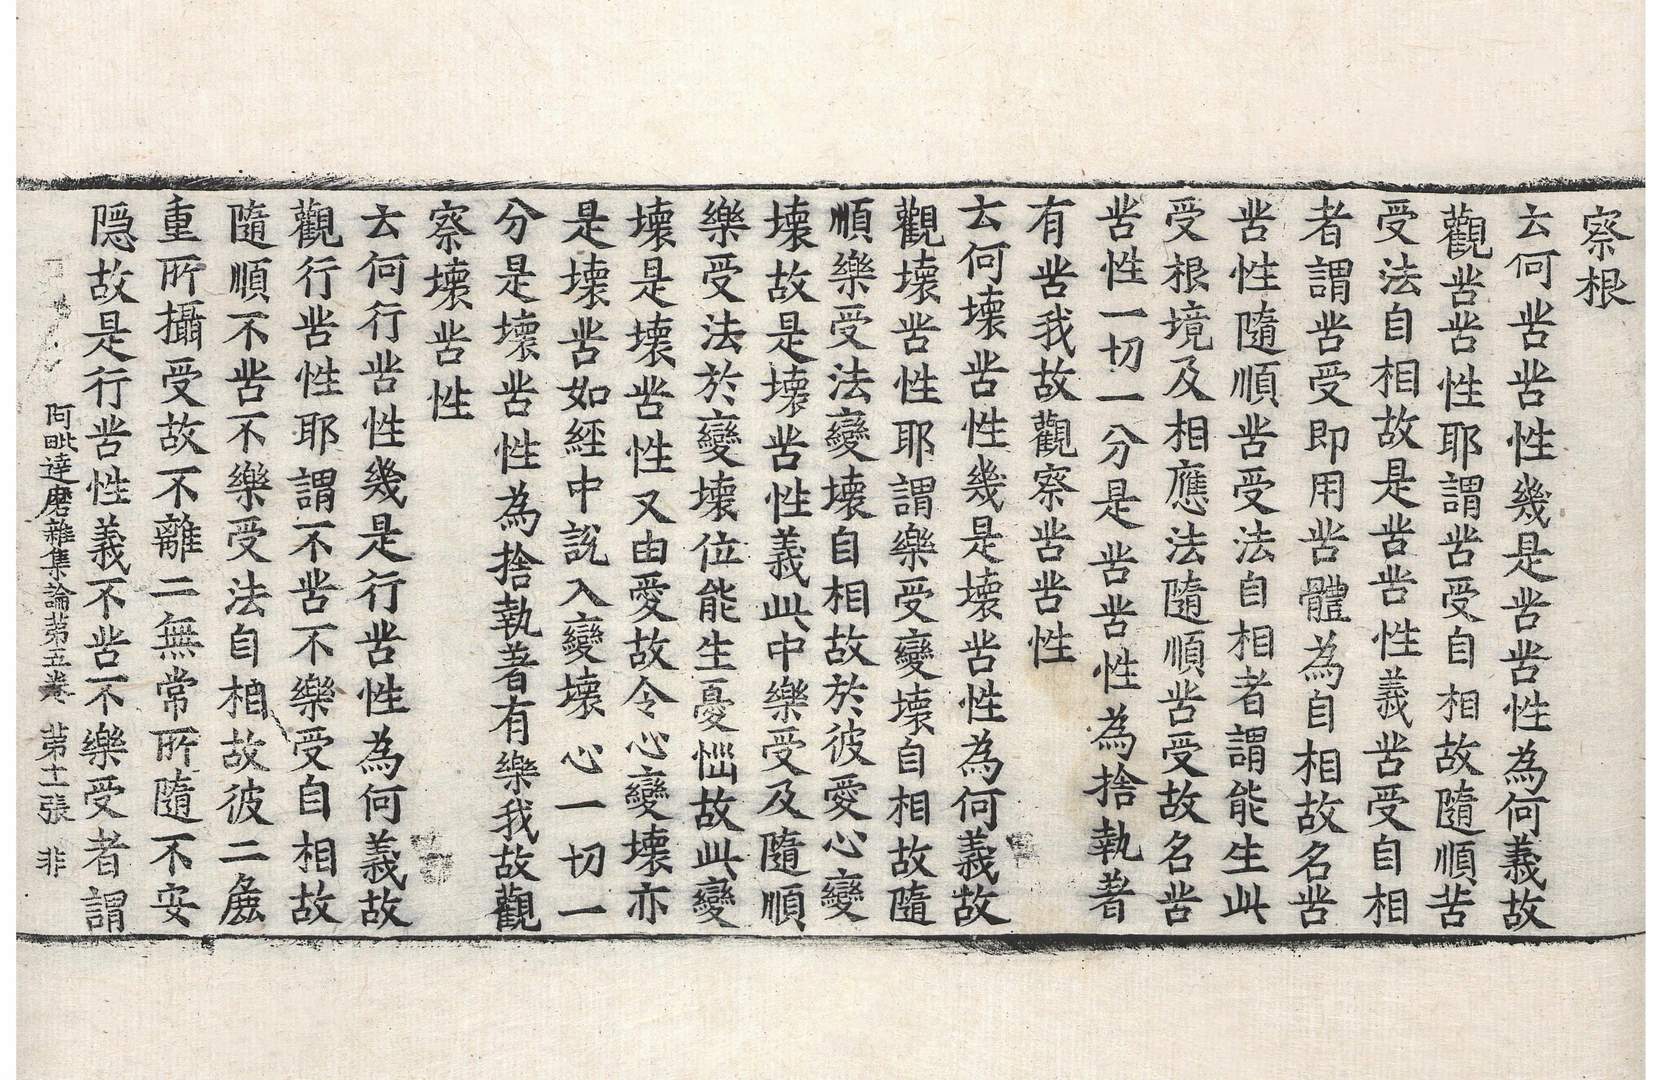 察根
云何苦苦性幾是苦苦性為何義故
觀苦苦性耶謂苦受自相故隨順苦
受法自相故是苦苦性義苦受自相
者謂苦受即用苦體為自相故名苦
苦性隨順苦受法自相者謂能生此
受根境及相應法隨順苦受故名苦
苦性一切一分是苦苦性為捨執著
有苦我故觀察苦苦性
云何壞苦性幾是壞苦性為何義故
觀壞苦性耶謂樂受變壞自相故隨
順樂受法變壞自相故於彼愛心變
壞故是壞苦性義此中樂受及隨順
樂受法於變壞位能生憂惱故此變
壞是壞苦性又由愛故令心變壞亦
是壞苦如經中說入變壞心一切一
分是壞苦性為捨執著有樂我故觀
察壞苦性
云何行苦性幾是行苦性為何義故
觀行苦性耶謂不苦不樂受自相故
隨順不苦不樂受法自相故彼二麁
重所攝受故不離二無常所隨不安
隱故是行苦性義不苦不樂受者謂
阿毗達磨雜集論第五卷 第十一張 非